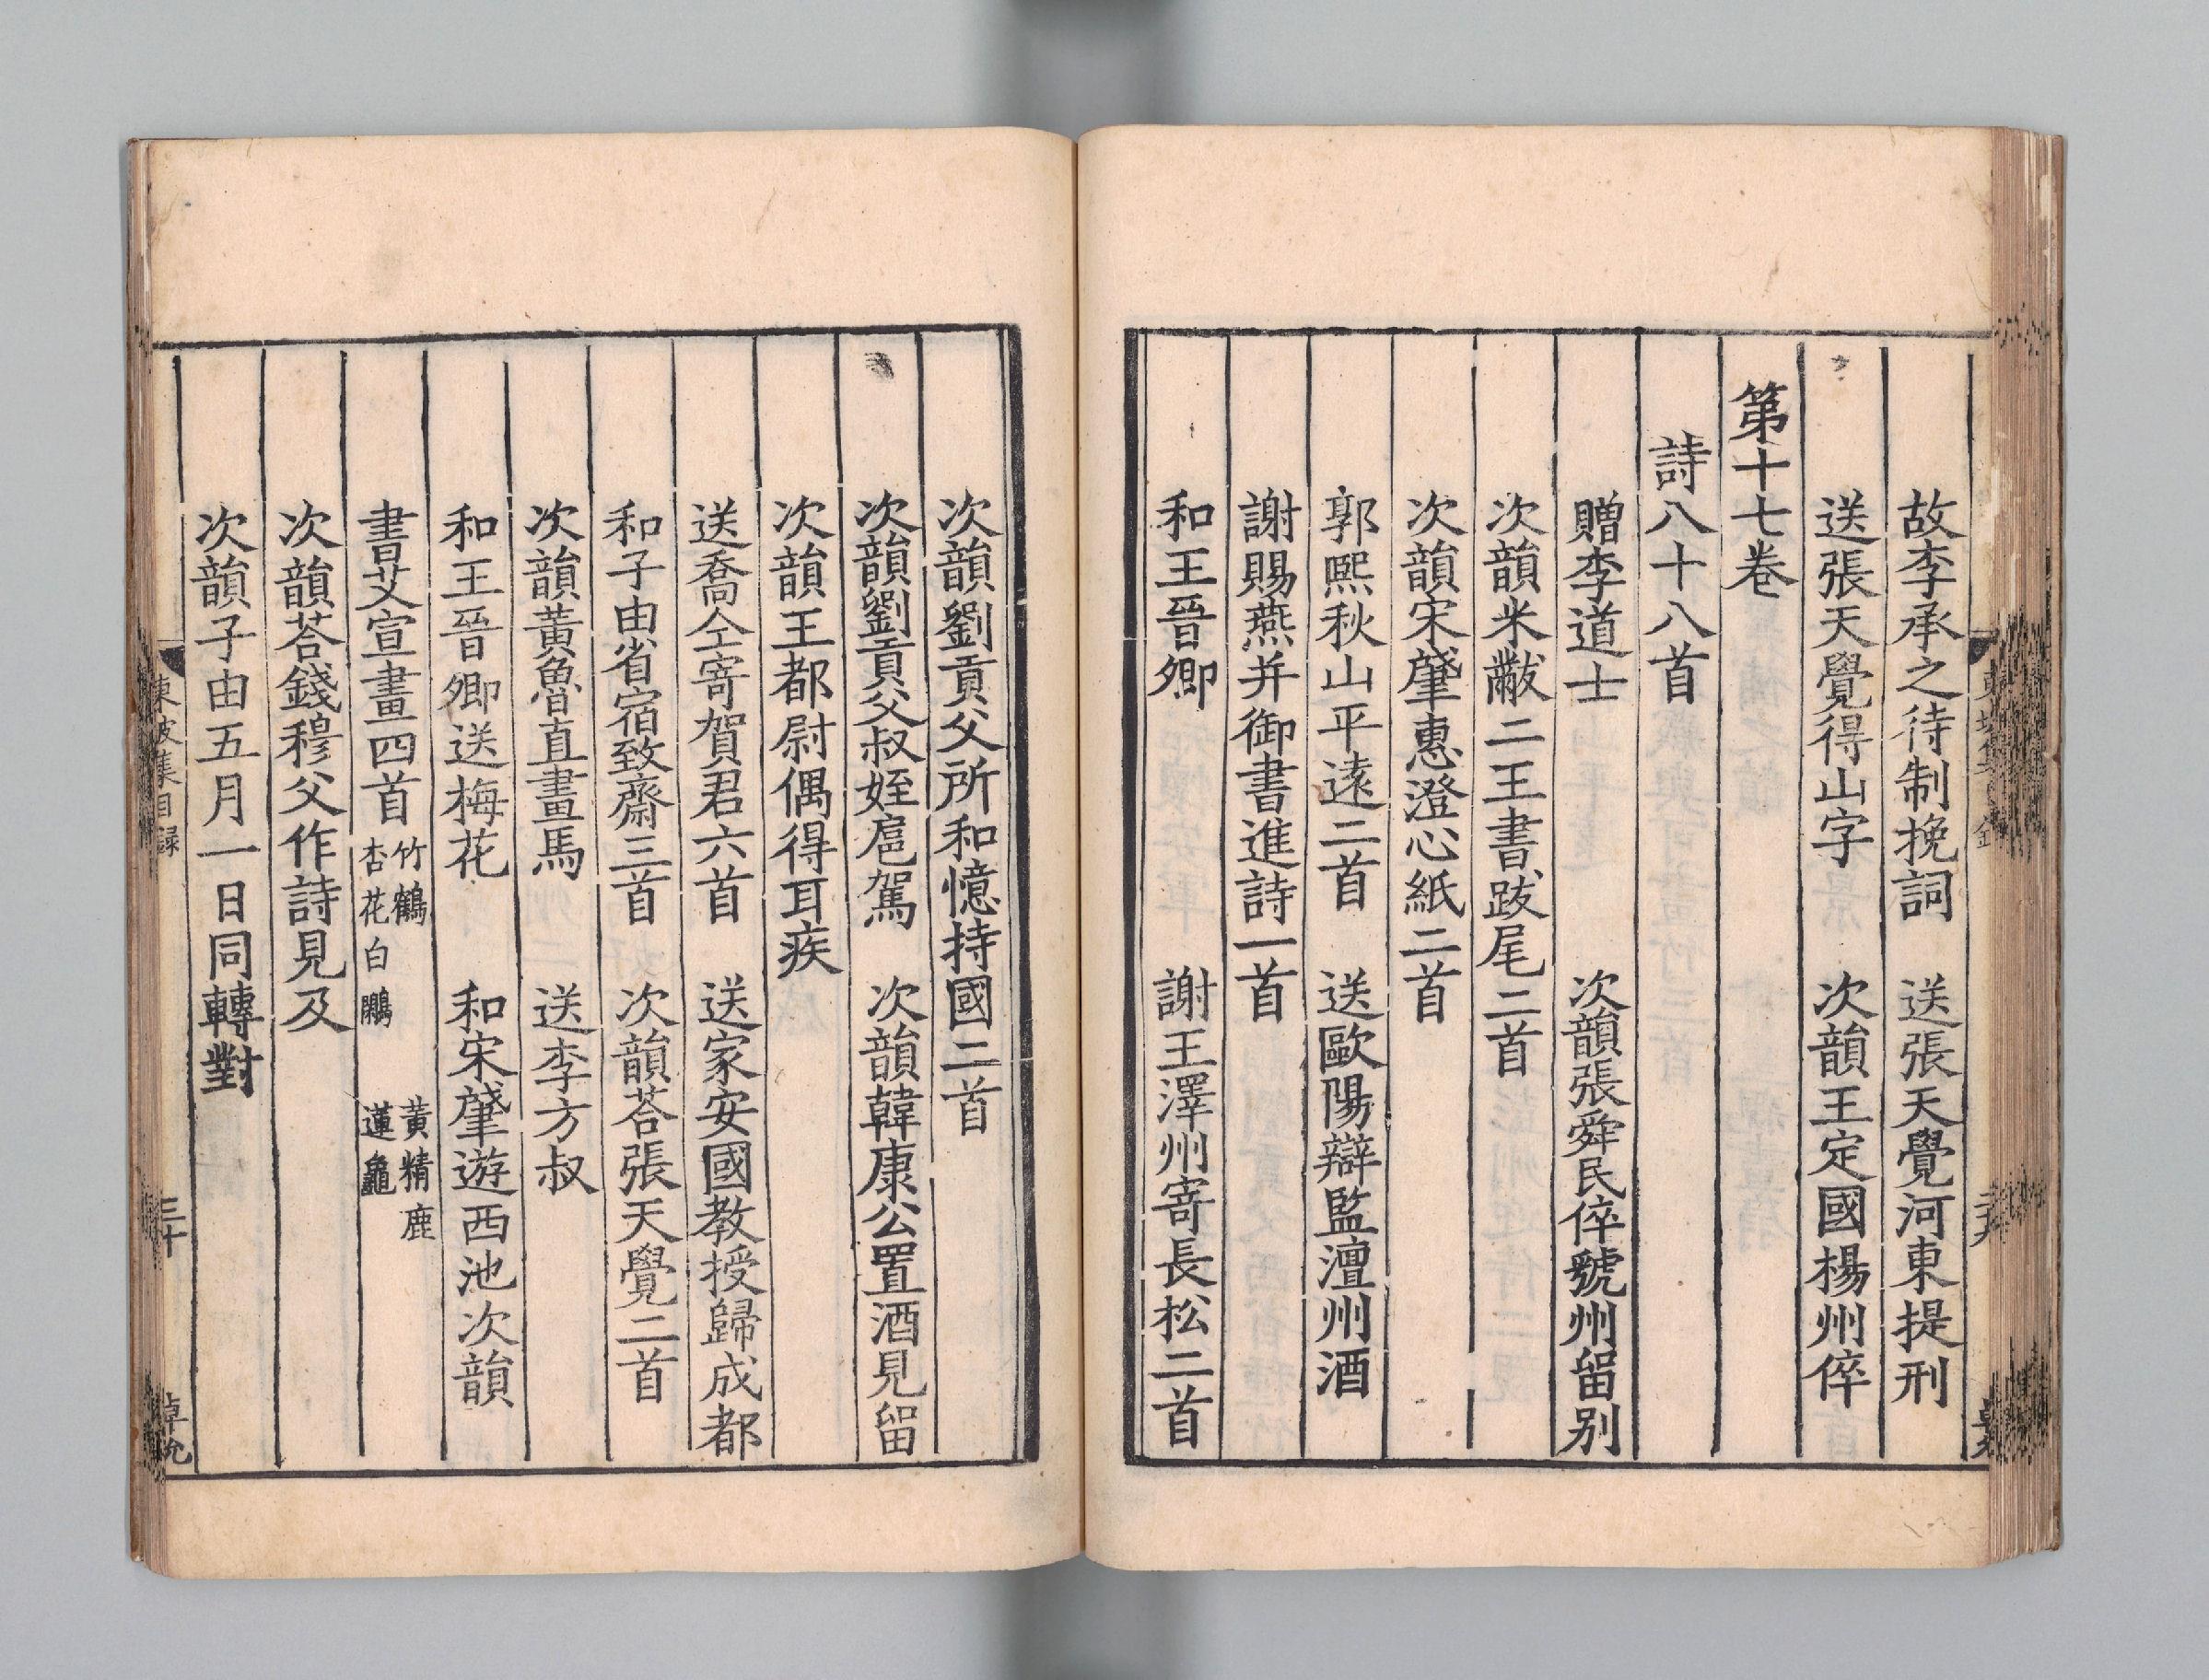 故李承之待制挽詞　送張天覺河東提刑
送張天覺得山字　次韻王定國楊州倅
第十七卷
詩八十八首
贈李道士　次韻張舜民倅虢州留别
次韻米黻二王書跋尾二首
次韻宋肇惠澄心紙二首
郭熙秋山平遠二首　送歐陽辯監澶州酒
謝賜燕并御書進詩一首
和王晉卿　謝王澤州寄長松二首
次韻劉貢父所和憶持國二首
次韻劉貢父叔姪扈駕　次韻韓康公置酒見留
次韻王都尉偶得耳疾
送喬仝寄賀君六首　送家安國教授歸成都
和子由省宿致齋三首　次韻荅張天覺二首
次韻黃魯直畫馬　送李方叔
和王晉卿送梅花　和宋肇遊西池次韻
書艾宣畫四首　竹鶴　黄精鹿　杏花白鷴　蓮龜
次韻荅錢穆父作詩見及
次韻子由五月一日同轉對
東坡集目録　三十